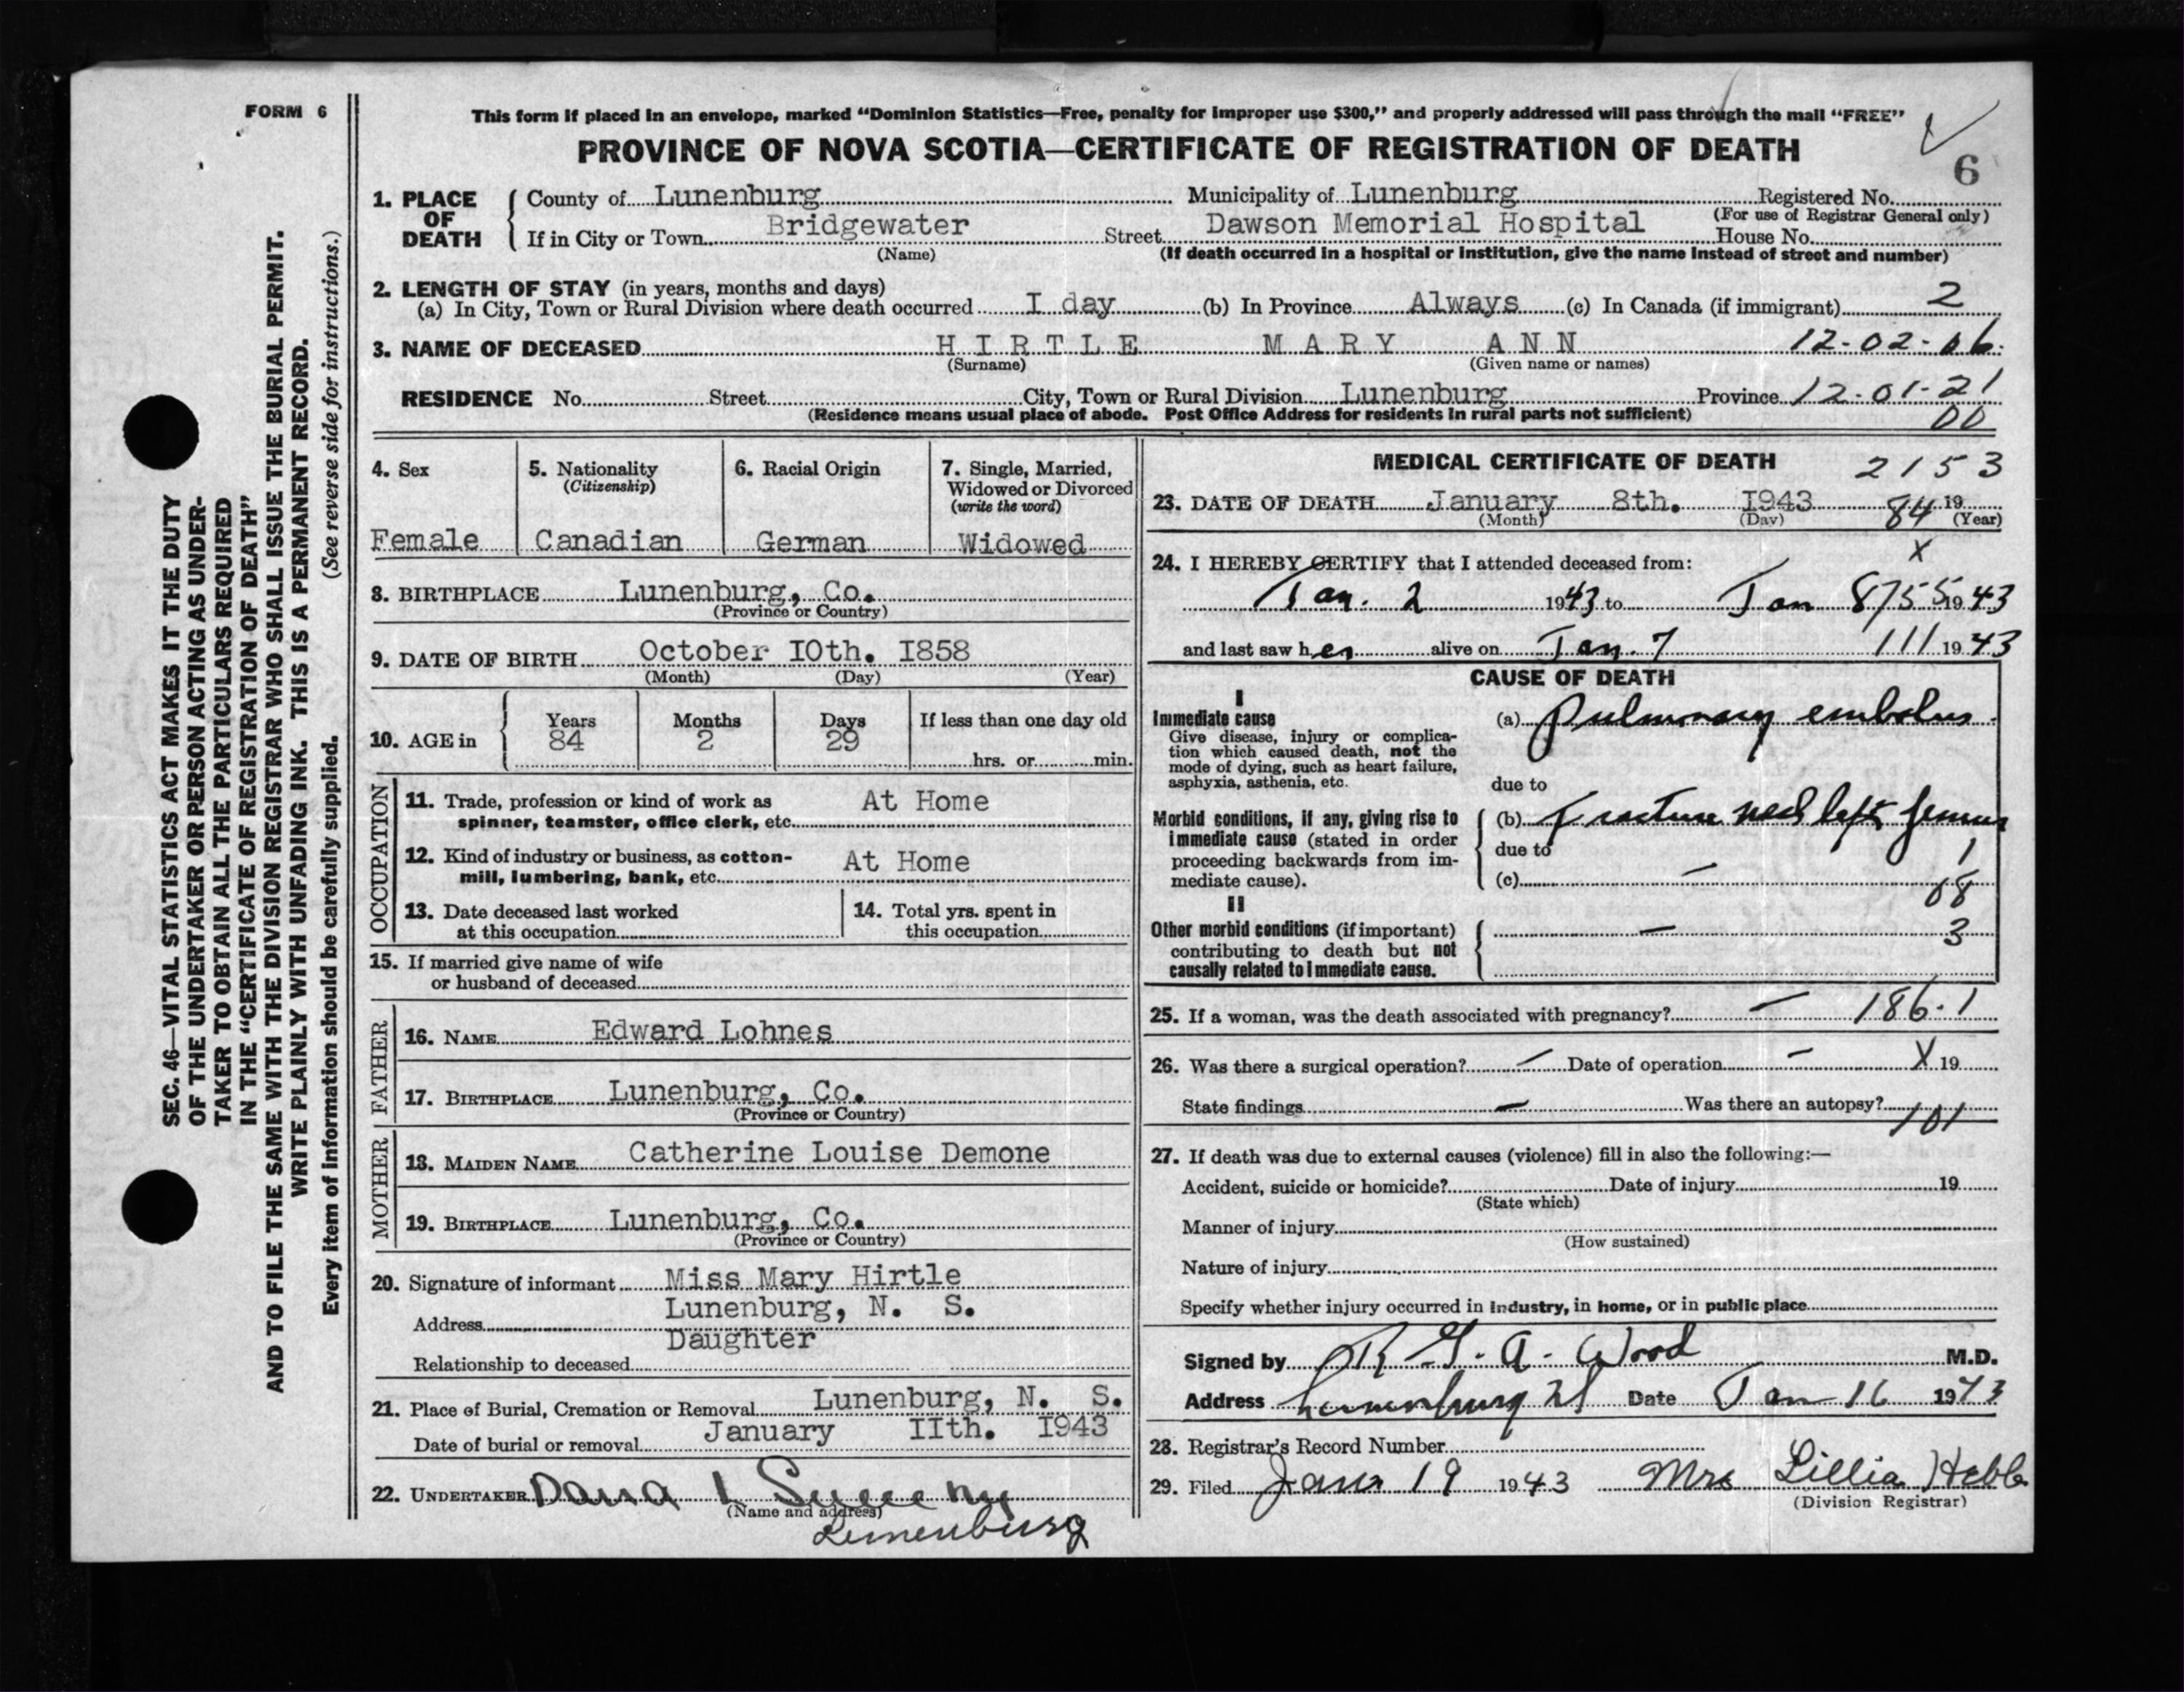 FORM 6
This form if placed in an envelope, marked “Dominion Statistics—Free, penalty for improper use $300,” and properly addressed will pass through the mail “FREE”
PROVINCE OF NOVA SCOTIA—CERTIFICATE OF REGISTRATION OF DEATH
6
1. PLACE OF DEATH
County of Lunenburg Municipality of Lunenburg Registered No.
(For use of Registrar General only)
If in City or Town Bridgewater Street Dawson Memorial Hospital House No.
(Name) (If death occurred in a hospital or institution, give the name instead of street and number)
2. LENGTH OF STAY (in years, months and days)
(a) In City, Town or Rural Division where death occurred I day (b) In Province Always (c) In Canada (if immigrant) 2
3. NAME OF DECEASED HIRTLE MARY ANN 12-02-06
(Surname) (Given name or names)
RESIDENCE No. Street City, Town or Rural Division Lunenburg Province 12-01-21
(Residence means usual place of abode. Post Office Address for residents in rural parts not sufficient) 00
4. Sex
Female
5. Nationality
(Citizenship)
Canadian
6. Racial Origin
German
7. Single, Married,
Widowed or Divorced
(write the word)
Widowed
8. BIRTHPLACE Lunenburg, Co.
(Province or Country)
9. DATE OF BIRTH October IOth. I858
(Month) (Day) (Year)
10. AGE in
Years Months Days If less than one day old
84 2 29
hrs. or min.
OCCUPATION
11. Trade, profession or kind of work as At Home
spinner, teamster, office clerk, etc.
12. Kind of industry or business, as cotton- At Home
mill, lumbering, bank, etc.
13. Date deceased last worked
at this occupation
14. Total yrs. spent in
this occupation
15. If married give name of wife
or husband of deceased
FATHER
16. NAME Edward Lohnes
17. BIRTHPLACE Lunenburg, Co.
(Province or Country)
MOTHER
18. MAIDEN NAME Catherine Louise Demone
19. BIRTHPLACE Lunenburg, Co.
(Province or Country)
20. Signature of informant Miss Mary Hirtle
Address Lunenburg, N. S.
Relationship to deceased Daughter
21. Place of Burial, Cremation or Removal Lunenburg, N. S.
Date of burial or removal January IIth. I943
22. UNDERTAKER Dana L Sweeny
(Name and address)
Lunenburg
MEDICAL CERTIFICATE OF DEATH 2153
23. DATE OF DEATH January 8th. I943 84 19
(Month) (Day) (Year)
24. I HEREBY CERTIFY that I attended deceased from: X
Jan. 2 1943 to Jan 8 755 1943
and last saw her alive on Jan. 7 111 1943
CAUSE OF DEATH
I
Immediate cause
Give disease, injury or complica-
tion which caused death, not the
mode of dying, such as heart failure,
asphyxia, asthenia, etc.
(a) Pulmonary embolus.
due to
Morbid conditions, if any, giving rise to
immediate cause (stated in order
proceeding backwards from im-
mediate cause).
(b) fracture neck left femur
due to 1
(c) — 08
II
Other morbid conditions (if important)
contributing to death but not
causally related to immediate cause.
— 3
25. If a woman, was the death associated with pregnancy? — 186.1
26. Was there a surgical operation? — Date of operation — X 19
State findings — Was there an autopsy? 101
27. If death was due to external causes (violence) fill in also the following:—
Accident, suicide or homicide? Date of injury 19
(State which)
Manner of injury
(How sustained)
Nature of injury
Specify whether injury occurred in industry, in home, or in public place
Signed by R G. A. Wood M.D.
Address Lunenburg NS Date Jan 16 1943
28. Registrar's Record Number
29. Filed Jan 19 1943 Mrs Lillia Hebb
(Division Registrar)
SEC. 46—VITAL STATISTICS ACT MAKES IT THE DUTY
OF THE UNDERTAKER OR PERSON ACTING AS UNDER-
TAKER TO OBTAIN ALL THE PARTICULARS REQUIRED
IN THE “CERTIFICATE OF REGISTRATION OF DEATH”
AND TO FILE THE SAME WITH THE DIVISION REGISTRAR WHO SHALL ISSUE THE BURIAL PERMIT.
WRITE PLAINLY WITH UNFADING INK. THIS IS A PERMANENT RECORD.
Every item of information should be carefully supplied. (See reverse side for instructions.)